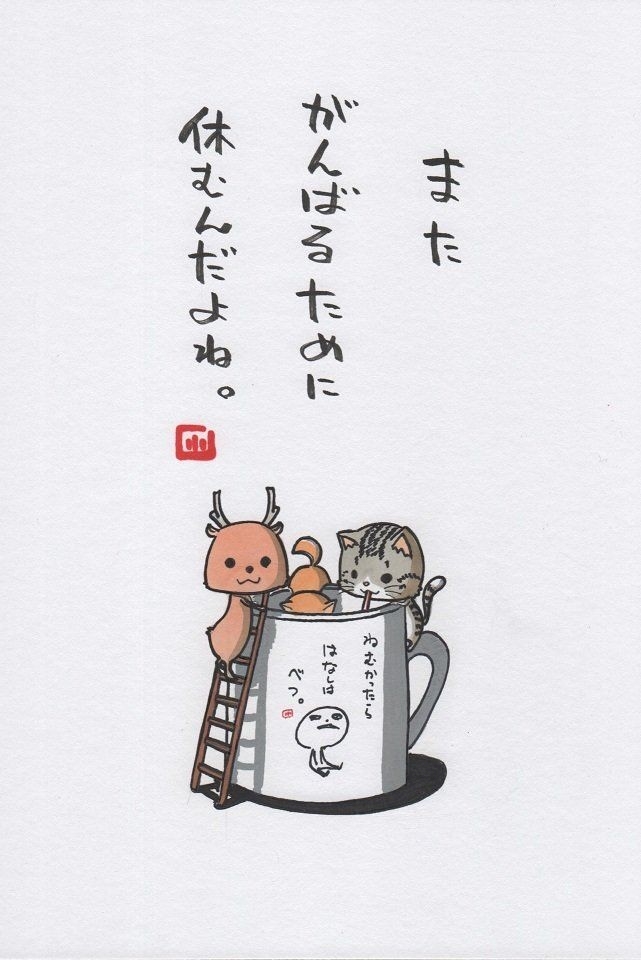 また
がんばるために
休むんだよね。
ねむかったら
はなしは
べつ。